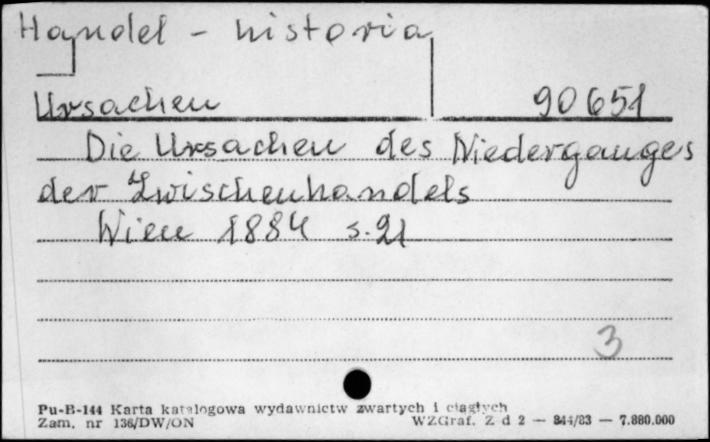 Handel - historia
Ursachen 90651
Die Ursachen des Niederganges
der Zwischenhandels
Wien 1884 s. 21
3
Pu-B-144 Karta katalogowa wydawnictw zwartych i ciągłych
Zam. nr 136/DW/ON WZGraf. Z d 2 — 844/83 — 7.880.000